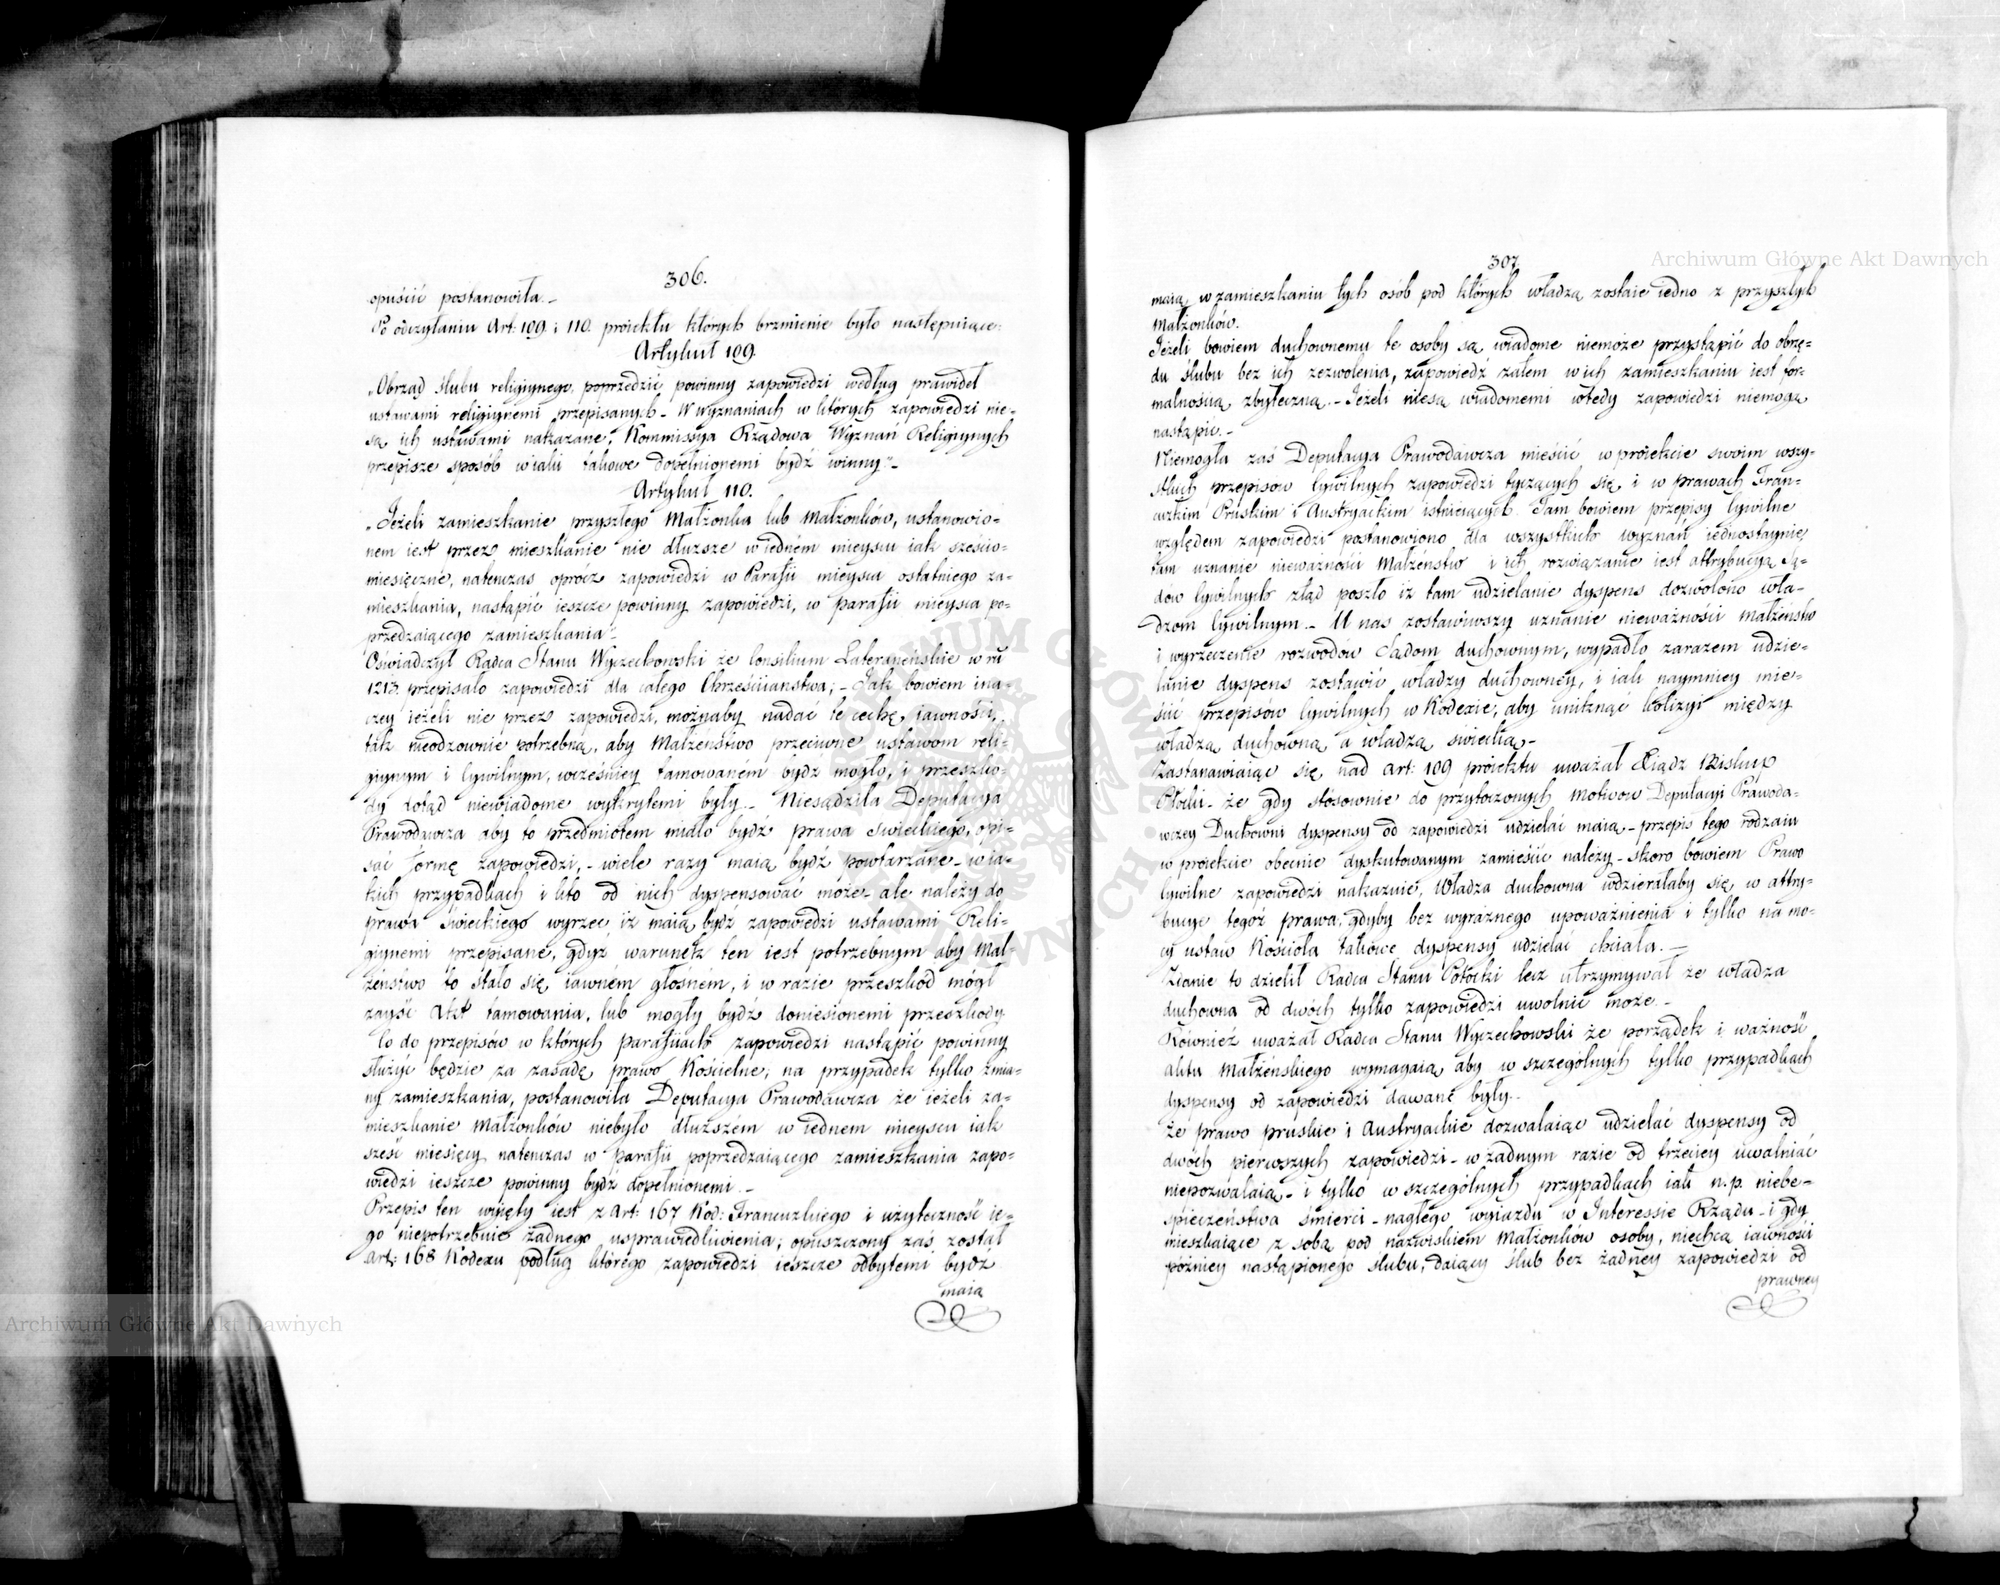 306.
opuścić postanowiła._
Po odczytaniu Art: 109. i 110. proiektu których brzmienie było następuiące:
Artykuł 109.
„Obrząd ślubu religiynego, poprzedzić powinny zapowiedzi według prawideł
ustawami religiynemi przepisanych._ W wyznaniach w których zapowiedzi nie=
są ich ustawami nakazane, Kommissya Rządowa Wyznań Religiynych
przepisze sposób w iakii takowe dopełnionemi bydź winny"._
Artykuł 110.
„Jeżeli zamieszkanie przyszłego Małżonka lub Małżonków, ustanowio=
nem iest przez mieszkanie nie dłuższe w iedném mieyscu iak sześcio=
miesięczne, natenczas oprócz zapowiedzi w Parafii mieysca ostatniego za=
mieszkania, nastąpić ieszcze powinny zapowiedzi, w parafii mieysca po=
przedzaiącego zamieszkania"._
Oświadczył Radca Stanu Wyczechowski że Consilium Lateraneńskie w ru
1215. przepisało zapowiedzi dla całego Chrześciiaństwa;_ Jak bowiem ina=
czey ieżeli nie przez zapowiedzi, możnaby nadać tę cechę iawności,
tak nieodzownie potrzebną, aby Małżeństwo przeciwne ustawom reli=
giynym i Cywilnym, wcześniey tamowaném bydź mogło, i przeszko=
dy dotąd niewiadome wykrytemi były._ Niesądziła Deputacya
Prawodawcza aby to przedmiotem miało bydź prawa świeckiego, opi=
sać formę zapowiedzi,_ wiele razy maią bydź powtarzane_ w ia=
kich przypadkach i kto od nich dyspensować może_ ale należy do
prawa świeckiego wyrzec, iż maią bydź zapowiedzi ustawami Reli=
giynemi przepisane, gdyż warunek ten iest potrzebnym aby Mał=
żeństwo to stało się iawném głośném, i w razie przeszkód mógł
zayść Akt tamowania, lub mogły bydź doniesionemi przeszkody
Co do przepisów w których parafiiach zapowiedzi nastąpić powinny
służyć będzie za zasadę prawo Kościelne; na przypadek tylko zmia=
ny zamieszkania, postanowiła Deputacya Prawodawcza że ieżeli za=
mieszkanie Małżonków niebyło dłuższém w iednem mieyscu iak
sześć miesięcy natenczas w parafii poprzedzaiącego zamieszkania zapo=
wiedzi ieszcze powinny bydź dopełnionemi._
Przepis ten więty iest z Art: 167 Kod: Francuzkiego i użyteczność ie=
go niepotrzebuie żadnego usprawiedliwienia; opuszczony zaś został
Art: 168 Kodexu podług którego zapowiedzi ieszcze odbytemi bydź
maią
307
maią w zamieszkaniu tych osób pod których władzą zostaie iedno z przyszłych
Małżonków.
Jeżeli bowiem duchownemu te osoby są wiadome niemoże przystąpić do obrzę=
du ślubu bez ich zezwolenia, zapowiedź zatem w ich zamieszkaniu iest for=
malnością zbyteczną._ Jeżeli niesą wiadomemi wtedy zapowiedzi niemogą
nastąpić._
Niemogła zaś Deputacya Prawodawcza mieścić w proiekcie swoim wszy=
stkich przepisów Cywilnych zapowiedzi tyczących się, i w prawach Fran=
cuzkim Pruskim i Austryackim istnieiących. Tam bowiem przepisy Cywilne
względem zapowiedzi postanowiono dla wszystkich wyznań iednostaynie,
tam uznanie nieważności Małżeństw i ich rozwiązanie iest attrybucyą Są=
dów Cywilnych ztąd poszło iż tam udzielanie dyspens dozwolono Wła=
dzom Cywilnym._ U nas zostawiwszy uznanie nieważności małżeństw
i wyrzeczenie rozwodów Sądom duchownym, wypadło zarazem udzie=
lanie dyspens zostawić władzy duchowney, i iak naymniey mie=
ścić przepisów Cywilnych w Kodexie; aby uniknąć kolizyi między
władzą duchowną a władzą świecką._
Zastanawiaiąc się nad Art: 109 proiektu uważał Xiądz Biskup
Płocki_ że gdy stosownie do przytoczonych motivów Deputacyi Prawoda=
wczey Duchowni dyspensy od zapowiedzi udzielać maią_ przepis tego rodzaiu
w proiekcie obecnie dyskutowanym zamieścić należy_ skoro bowiem Prawo
Cywilne zapowiedzi nakazuie, Władza duchowna wdzierałaby się w attry=
bucye tegoż prawa, gdyby bez wyraźnego upoważnienia i tylko na mo=
cy ustaw Kościoła takowe dyspensy udzielać chciała._
Zdanie to dzielił Radca Stanu Potocki lecz utrzymywał że władza
duchowna od dwóch tylko zapowiedzi uwolnić może._
Również uważał Radca Stanu Wyczechowski że porządek i ważność
aktu Małżeńskiego wymagaią aby w szczególnych tylko przypadkach
dyspensy od zapowiedzi dawane były._
Że prawo pruskie i Austryackie dozwalaiąc udzielać dyspensy od
dwóch pierwszych zapowiedzi_ w żadnym razie od trzeciey uwalniać
niepozwalaią_ i tylko w szczególnych przypadkach iak n.p. niebe=
spieczeństwa śmierci_ nagłego wyiazdu w Interessie Rządu_ i gdy
mieszkaiące z sobą pod nazwiskiem Małżonków osoby, niechcą iawności
późniey nastąpionego ślubu, daiący ślub bez żadney zapowiedzi od
prawney
Archiwum Główne Akt Dawnych
Archiwum Główne Akt Dawnych
ARCHIWUM GŁÓWNE AKT DAWNYCH